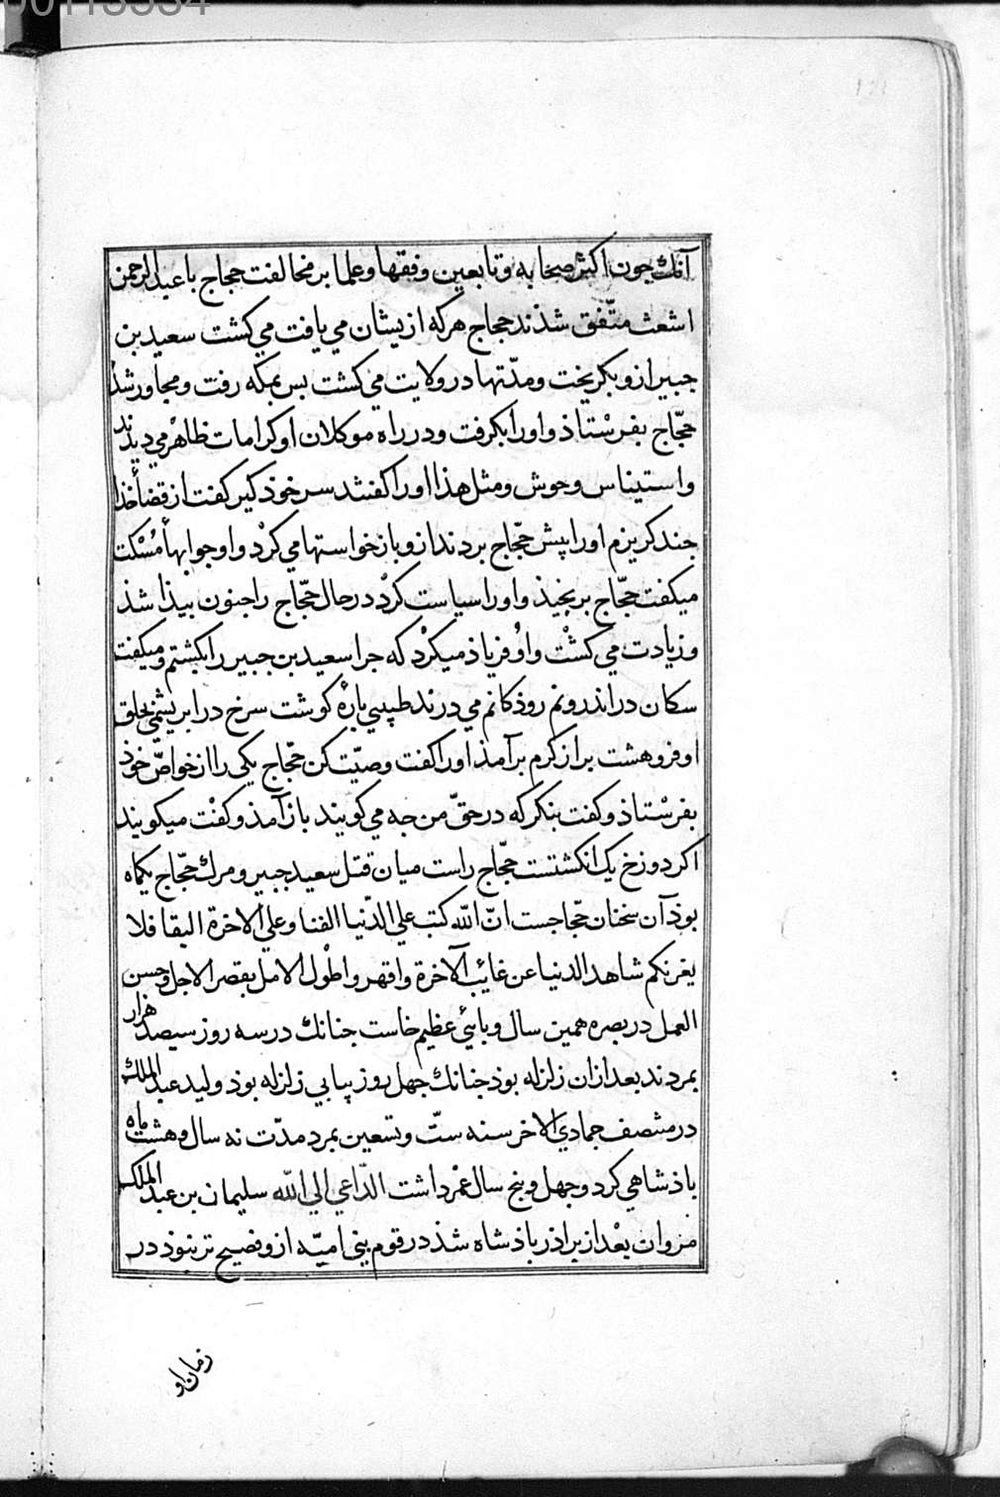 00113534
121
آنک جون اکثر صحابه و تابعین و فقها و علما بر مخالفت حجاج با عبد الرحمن
اشعث متّفق شذند حجاج هر که از یشان می یافت می کشت سعید بن
جبیر ازو بکریخت و مدّتها در ولایت می کشت بس بمکه رفت و مجاور شذ
حجّاج بفرستاذ و اورا بکرفت و در راه موکلان او کرامات ظاهر می دیدند
و استیناس وحوش و مثل هذا اورا کفتند سر خوذ کیر کفت از قضا خذا
جند کریزم اورا پیش حجّاج بردند ازو باز خواستها می کرد و او جوابها مُسکت
میکفت حجّاج برنجیذ و اورا سیاست کرد در حال حجّاج را جنون بیذا شذ
و زیادت می کشت و او فریاذ میکرد که جرا سعید بن جبیر را بکشتم و میکفت
سکان در اندرونم روذکانم می درند طبیبی بارۀ کوشت سرخ در ابریشمی بخلق
او فروهشت بر از کرم برآمذ اورا کفت وصیّت کن حجّاج یکی را از خواصّ خوذ
بفرستاذ و کفت بنکر که در حقّ من جه می کویند باز آمذ و کفت میکویند
اکر دوزخ یک انکشتست حجّاج راست میان قتل سعید جبیر و مرک حجّاج یکماه
بوذ آن سخنان حجّاجست انّ الله کتب علی الدّنیا الفنا و علی الاخرة البقا فلا
یغرنکم شاهد الدنیا عن غائب الآخرة و اقهر و اطول الامل بقصر الاجل و حسن
العمل در بصره همین سال وبایئ عظیم خاست جنانک در سه روز سیصد هزار
بمردند بعد ازان زلزله بوذ جنانک جهل روز پیابی زلزله بوذ ولید عبد الملک
در منتصف جمادی الاخر سنه ستّ و تسعین بمرد مدّت نه سال و هشت ماه
باذشاهی کرد و جهل و بنج سال عمر داشت الدّاعی الی الله سلیمان بن عبد الملک
مروان بعد از براذر باذشاه شذ در قوم بنی امیّه ازو فصیح تر نبوذ در
زمان او